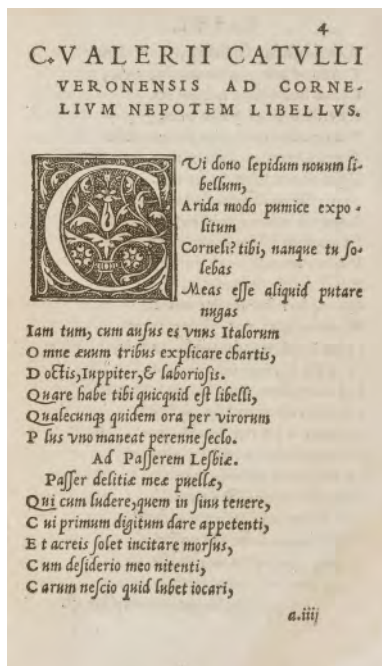 4
C. VALERII CATVLLI
VERONENSIS AD CORNE-
LIVM NEPOTEM LIBELLVS.
CVi dono lepidum nouum li-
bellum,
Arida modo pumice expo-
litum
Corneli? tibi, nanque tu so-
lebas
Meas esse aliquid putare
nugas
Iam tum, cum ausus es vnus Italorum
Omne æuum tribus explicare chartis,
Doctis, Iuppiter, & laboriosis.
Quare habe tibi quicquid est libelli,
Qualecunq; quidem ora per virorum
Plus vno maneat perenne seclo.
Ad Passerem Lesbiæ.
Passer delitiæ meæ puellæ,
Qui cum ludere, quem in sinu tenere,
Cui primum digitum dare appetenti,
Et acreis solet incitare morsus,
Cum desiderio meo nitenti,
Carum nescio quid lubet iocari,
a.iiij